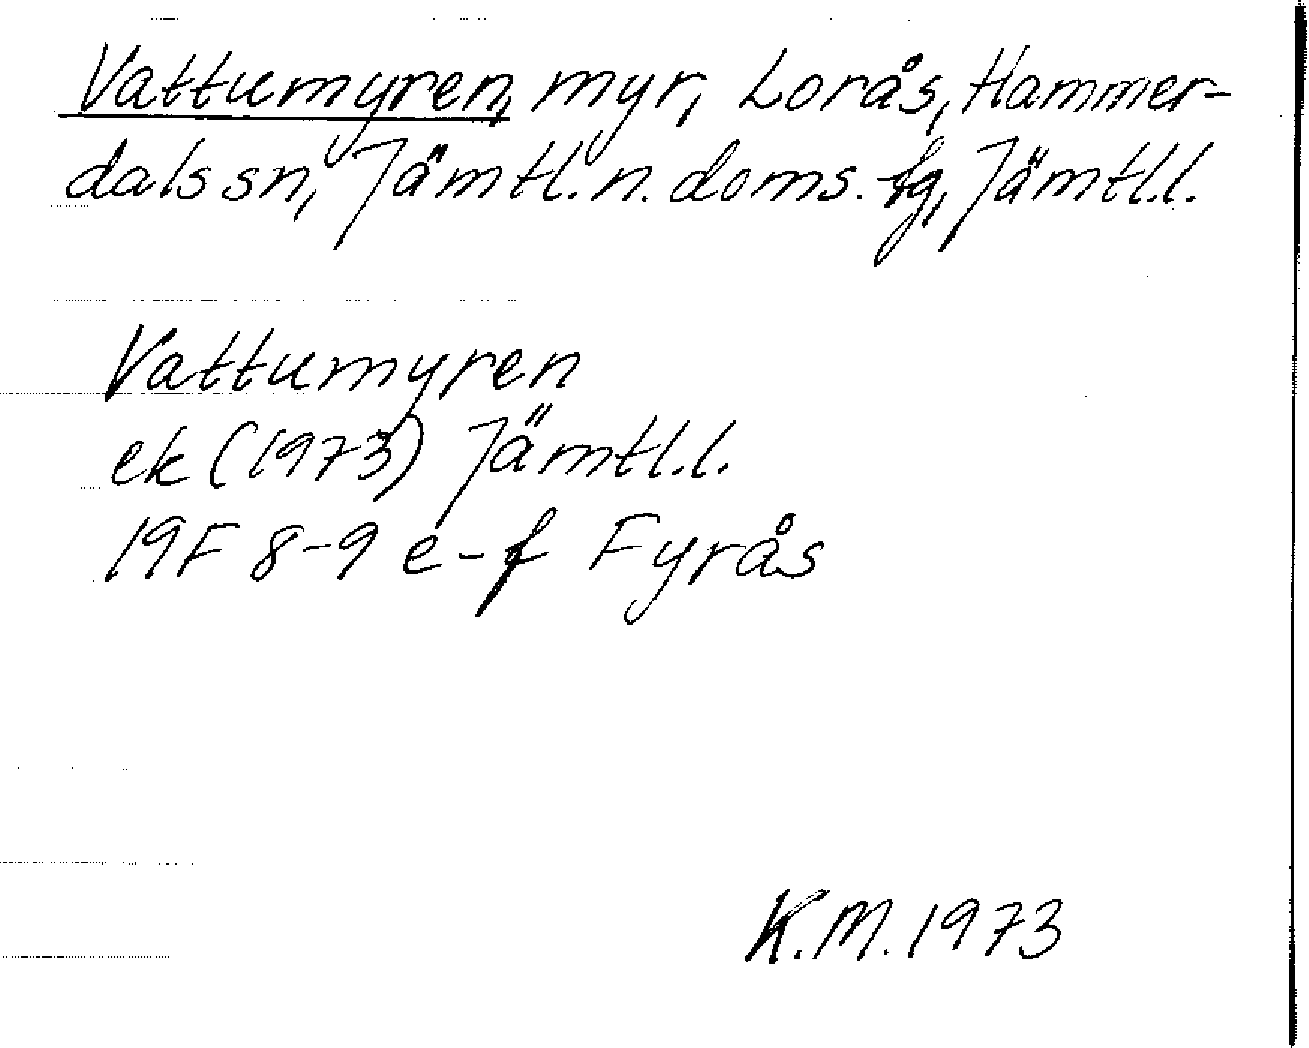 Vattumyren, myr, Lorås, Hammer-
dals sn, Jämtl. n. doms. fg, Jämtl. l.
Vattumyren
ek (1973) Jämtl. l.
19F 8-9 e-f Fyrås
K.M. 1973